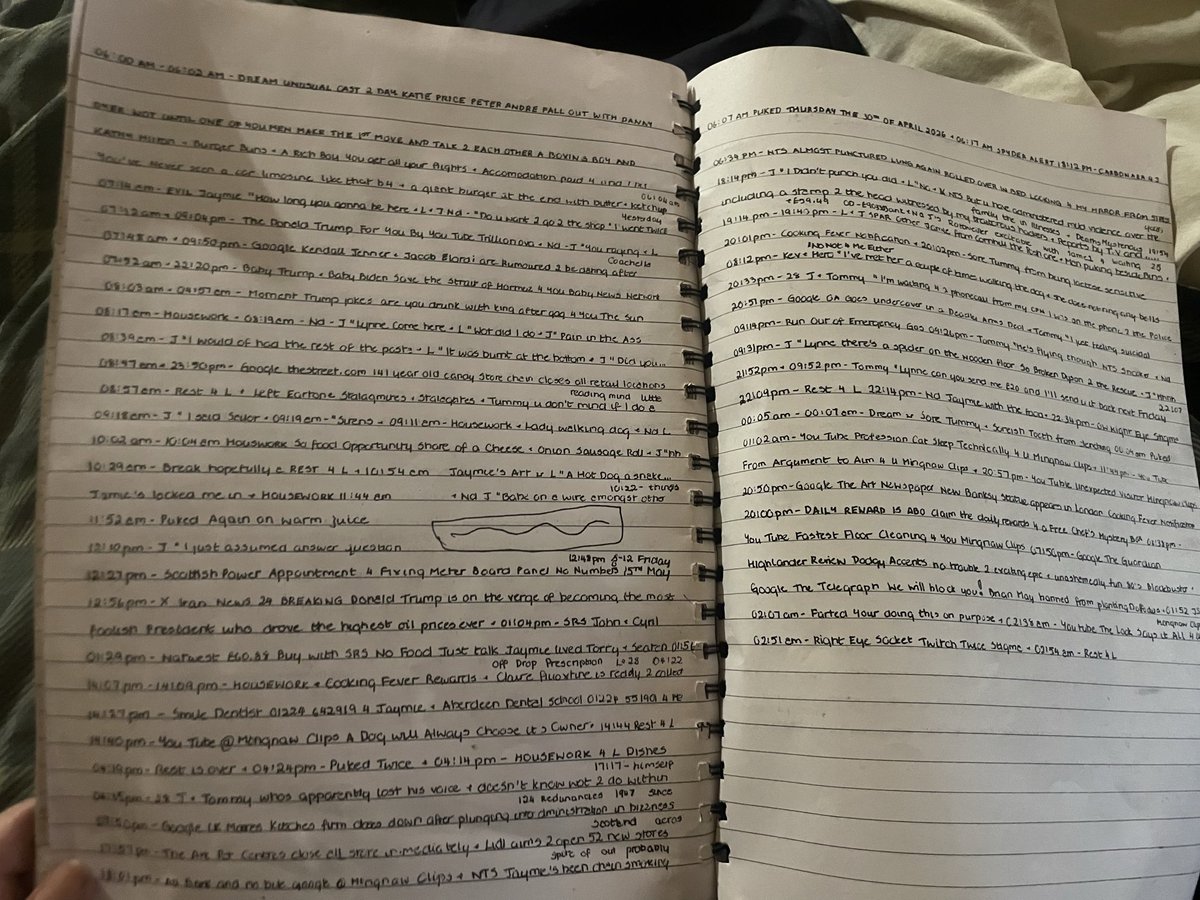 06:00 AM - 06:03 AM - DREAM UNUSUAL CAST 2 DAY KATIE PRICE PETER ANDRE FALL OUT WITH DANNY
DYER NOT UNTIL ONE OF YOU MEN MAKE THE 1ST MOVE AND TALK 2 EACH OTHER A BOXING BOY AND
Burger Buns + A Rich Boy You get all your flights + Accomodation paid 4 and I bet
06:04am
You've never seen a car limosine like that b4 + a giant burger at the end with butter + ketchup
Yesterday
07:14am - EVIL Jaymie "How long you gonna be here + L + 7 Nd - "Do u work 2 go 2 the shop "I went twice
07:12am + 09:04pm - The Donald Trump For You By You Tube Trillionova + Nd - J "You raging + L
Coachella
07:48am + 09:50pm - Google Kendall Jenner + Jacob Elordi are Rumoured 2 be dating after
07:52am - 22:20pm - Baby Trump + Baby Biden Save the Strait of Hormuz 4 You Baby News Network
08:03am + 04:57am - Moment Trump jokes are you drunk with king after gag 4 You The Sun
08:17am - Housework - 08:19am - Nd - J "Lynne come here + L "Wot did I do + J "Pain in the Ass
08:39am - J "I would of had the rest of the pasta - L "It was burnt at the bottom + J "Did you...
08:47am + 23:50pm - Google thestreet.com 141 year old candy store chain closes all retail locations
reading mind little
08:57am - Rest 4 L + Left Eartone Stalagmites + Stalagtites + Tummy u don't mind if I do a
09:18am - J "I said Sailor + 09:19am - "Sirens + 09:11am - Housework + Lady walking dog + Nd L
10:02am - 10:04am Housework So Food Opportunity Share of a Cheese + Onion Sausage Roll + J "hh
10:29am - Break hopefully & REST 4 L + 10:54am Jaymie's Art is L "A Hot Dog a snake...
10:22 - things
Jamie's locked me in + HOUSEWORK 11:44am + Nd J "Babe on a wire amongst other
11:52am - Puked Again on warm juice
12:10pm - J "I just assumed answer question
12:48pm 8-12 Friday
12:27pm - Scottish Power Appointment 4 Fixing Meter Board Panel No Numbers 15TH May
12:56pm - X Iran News 24 BREAKING Donald Trump is on the verge of becoming the most
Foolish President who drove the highest oil prices ever + 01:04pm - SRS John + Cyril
01:29pm - Natwest £60.88 Buy with SRS No Food Just talk Jaymie lived Torry + Seaton 01:56
Off Drop Prescription L 28 04:22
14:07pm - 14:09pm - HOUSEWORK + Cooking Fever Rewards + Claire is ready 2 collect
14:27pm - Smile Dentist 01224 642919 4 Jaymie + Aberdeen Dental School 01224 55190 4 Me
14:40pm - You Tube @ Mingnaw Clips A Dog Will Always Choose it's Owner + 14:44 Rest 4 L
04:19pm - Rest is over + 04:24pm - Puked Twice + 04:14pm - HOUSEWORK 4 L Dishes
17:17 - himself
28 J + Tommy whos apparently lost his voice + doesn't know wot 2 do within
124 Redunancies 1967 since
Google firm closes down after plunging into dministration in bizzness
Scotland across
17:57pm - The Art Centres close all store immediately + Lidl aims 2 open 52 new stores
spite of out probably
18:01pm - Google @ Mingnaw Clips + NTS Jayme's been chain smoking
06:07 AM PUKED THURSDAY THE 30TH OF APRIL 2026 + 06:17 AM SPYDER ALERT 18:12 PM - CARBONARA 4 2
06:34 PM - NTS ALMOST PUNCTURED LUNG AGAIN ROLLED OVER IN BED LOOKING 4 MY MIRROR FROM STACY
18:14pm - J "I Didn't punch you did + L "No + K NTS But u have administered mild violence over the
family the illnesses + Deaths Mysterious 18:54
including a stamp 2 the head witnessed by my brothers hackers + Reports by T.V and .....
19:14pm - 19:43pm - L + J SPAR
20:01pm - Cooking Fever Notification + 20:02pm - Sore Tummy from being lactose sensitive
AND NOT 4 Me Either
08:12pm - Kev + Hero "I've met her a couple of times walking the dog + she does not ring any bells
20:33pm - 28 J + Tommy "I'm waiting 4 a phonecall from my CPN I was on the phone 2 the Police
20:51pm - Google GA Goes Undercover in a Deadly Arms Deal + Tommy "I just feeling suicidal
09:19pm - Run Out of Emergency Gas 09:26pm - Tommy "he's flying enough NTS Sneaker + Nd
09:31pm - J "Lynne there's a spider on the Wooden Floor So Broken Dyson 2 the Rescue + J "Hmm
22:07
21:52pm + 09:52pm - Tommy "Lynne can you send me £20 and I'll send u it back next Friday
22:09pm - Rest 4 L 22:14pm - Nd Jaymie with the taco - 22:34pm - GN Right Eye Stagme
00:05am - 00:07am - Dream is Sore Tummy + Screish Tooth from Jerking 00:04am Puked
01:02am - You Tube Profession Cat Sleep Technically 4 U Mingnaw Clips + 11:44pm - You Tube
From Argument to Aim 4 U Mingnaw Clips + 20:57pm - You Tube Unexpected Visitor Mingnaw Clips
20:50pm - Google The Art Newspaper New Banksy Statue appears in London Cooking Fever Notification
20:00pm - DAILY REWARD IS ADO Claim the daily rewards 4 a Free Chef's Mystery Box 01:38pm -
You Tube Fastest Floor Cleaning 4 You Mingnaw Clips 07:50pm - Google The Guardian
Highlander Review Dodgy Accents no trouble 2 exciting epic + unashamedly fun 80's Blockbuster +
Google The Telegraph We will block you! Brian May banned from planting Daffodils + 01:52
Mingnaw Clips
02:07am - Farted Your doing this on purpose + 02:38am - YouTube The Look Says it All 4 U
02:51am - Right Eye Socket Twitch Twice Stagme + 02:54am - Rest 4 L